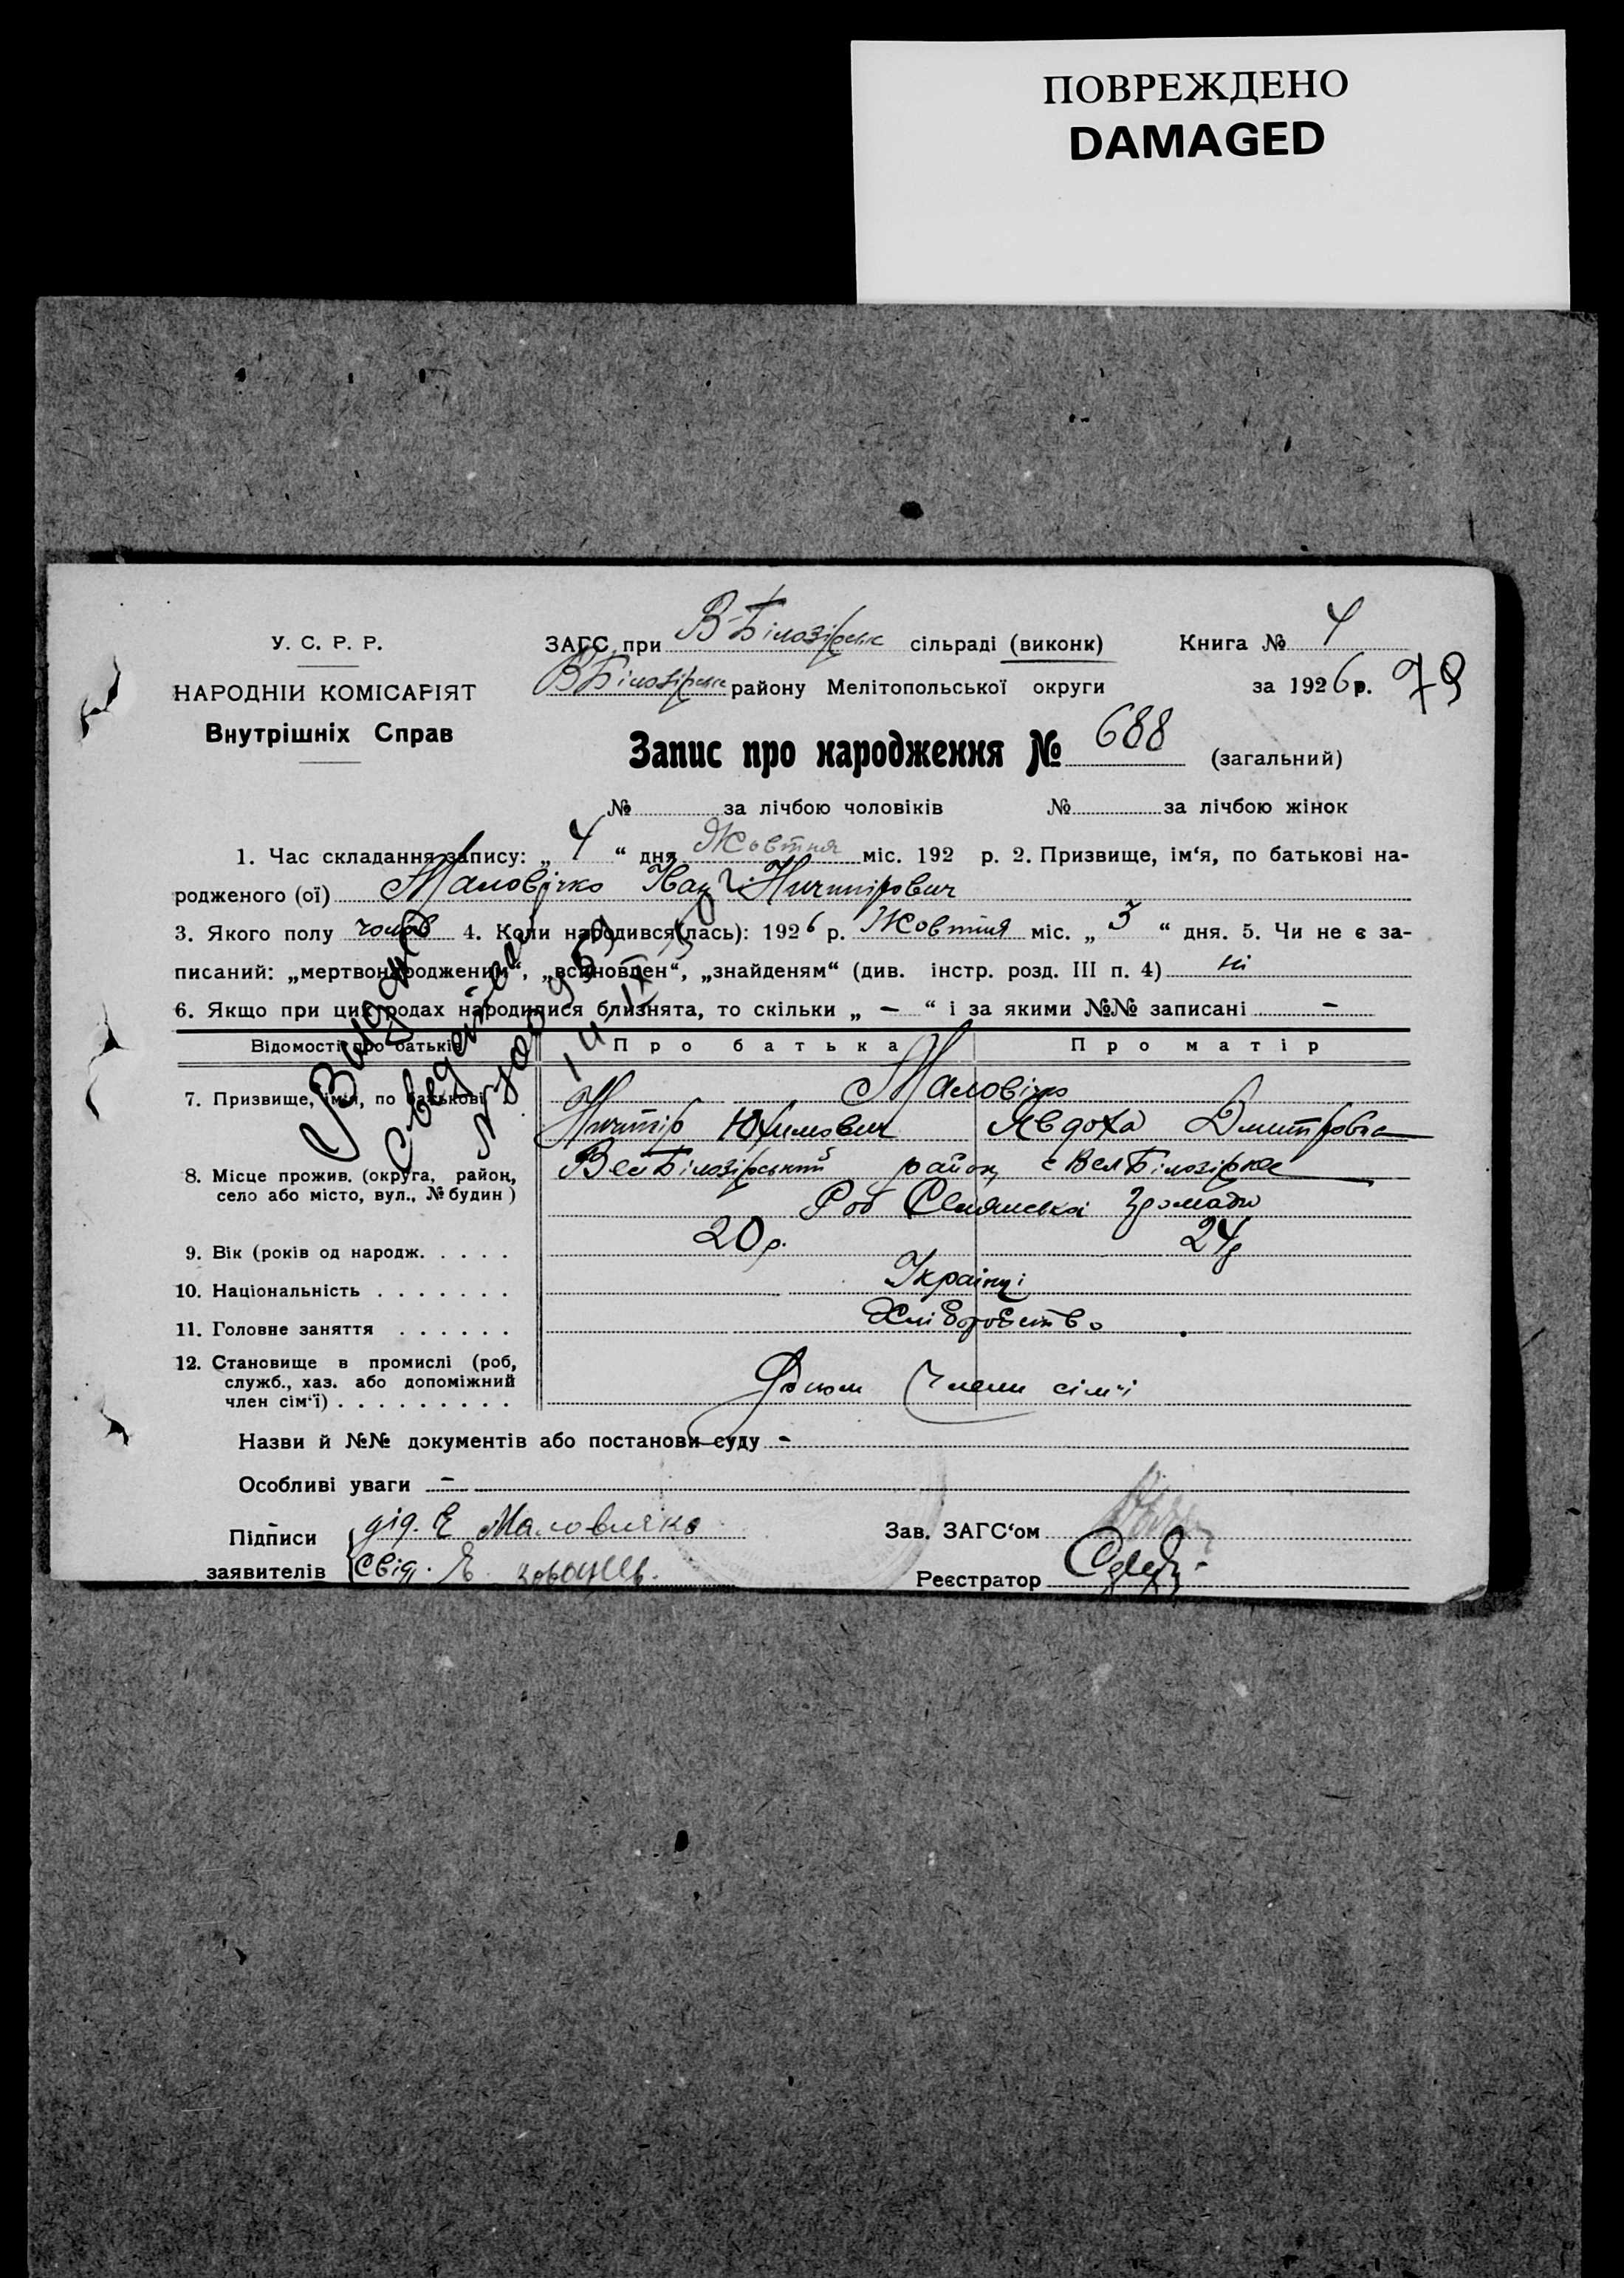 ПОВРЕЖДЕНО
DAMAGED
У. С. Р. Р.
НАРОДНІЙ КОМІСАРІЯТ
Внутрішніх Справ
ЗАГС при В-Білозірськ сільраді (виконк)
ВБілозірськ району Мелітопольської округи
Книга № 4
за 1926 р. 79
Запис про народження № 688 (загальний)
№ за лічбою чоловіків № за лічбою жінок
1. Час складання запису: „ 4 “ дня Жовтня міс. 192 р. 2. Призвище, ім‘я, по батькові на-
родженого (ої) Маловічко Іван Ничипірович
3. Якого полу чолов 4. Коли народився(лась): 1926 р. Жовтня міс. „ 3 “ дня. 5. Чи не є за-
писаний: „мертвонародженим“, „всиновлен“, „знайденям“ (див. інстр. розд. III п. 4) ні
6. Якщо при цих родах народилися близнята, то скільки „ — “ і за якими №№ записані —
Відомості про батьків Про батька Про матір
7. Призвище, ім‘я, по батькові Маловічко
Ничипір Юхимович Явдоха Дмитровна
8. Місце прожив. (округа, район,
село або місто, вул., № будин)
ВелБілозірський район, с ВелБілозірка
Селянська Громада
9. Вік (років од народж. . . . . 20 р. 24 р
10. Національність . . . . . . . Українці
11. Головне заняття . . . . . . Хліборобство
12. Становище в промислі (роб,
служб., хаз. або допоміжний
член сім‘ї) . . . . . . . . . Члени сім'ї
Назви й №№ документів або постанови суду -
Особливі уваги —
Підписи
заявителів
дід. Е Маловичко
Свід.
Зав. ЗАГС‘ом
Реєстратор